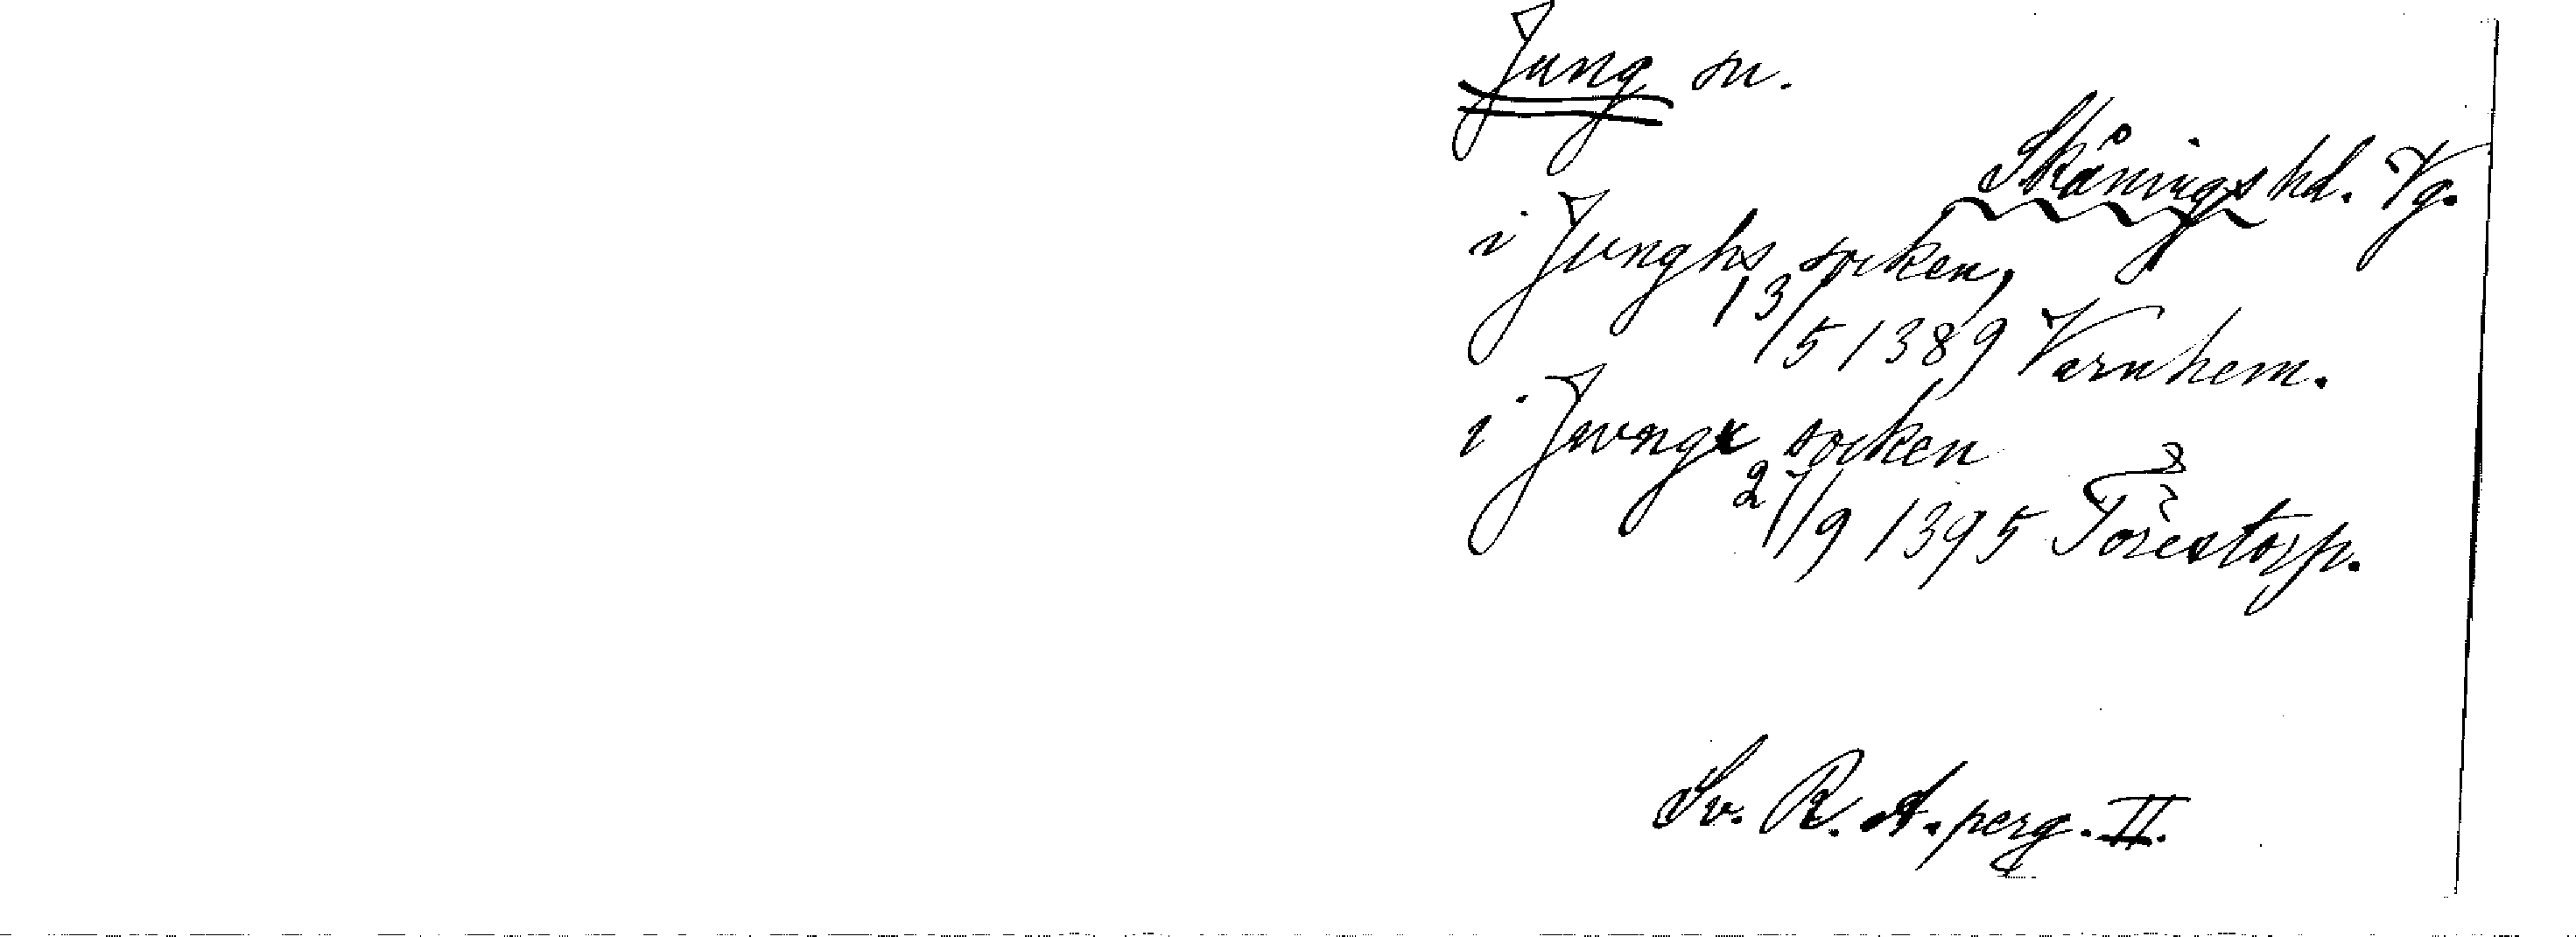 Jung sn.
Skånings hd. Vg.
i Junghs socken,
13/5 1389 Varnhem.
i Jwngx socken
27/9 1395 Torestorp.
Sv. R. A. perg. II.